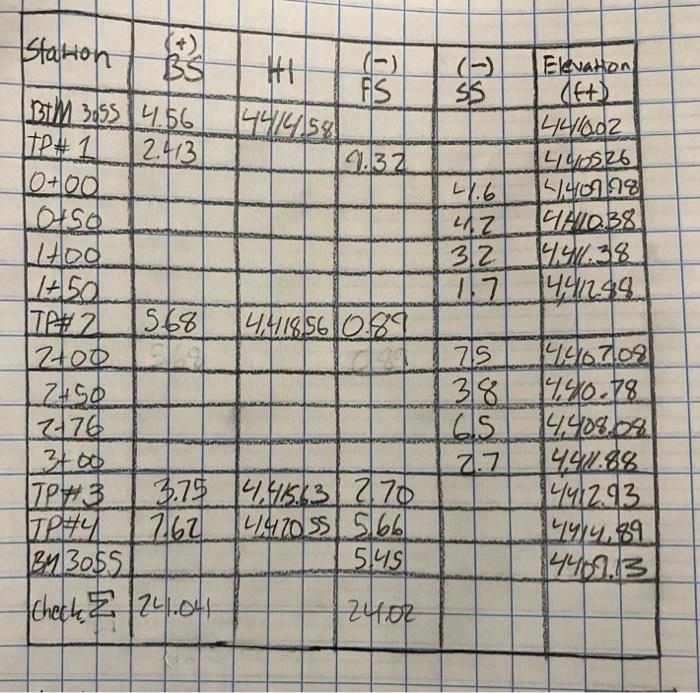 Station (+) BS HI (-) FS (-) SS Elevation (ft)
BM 3055 4.56 4414.58 4410.02
TP#1 2.43 9.32 4,405.26
0+00 4.6 4,409.98
0+50 4.2 4,410.38
1+00 3.2 4,411.38
1+50 1.7 4,412.88
TP#2 5.68 4,418.56 0.89
2+00 5.68 0.89 7.5 4,407.08
2+50 3.8 4,410.78
2+76 6.5 4,408.08
3+00 2.7 4,411.88
TP#3 3.75 4,415.63 2.70 4412.93
TP#4 7.62 4,420.55 5.66 4914.89
BM 3055 5.45 4409.13
Check Σ 24.041 24.02